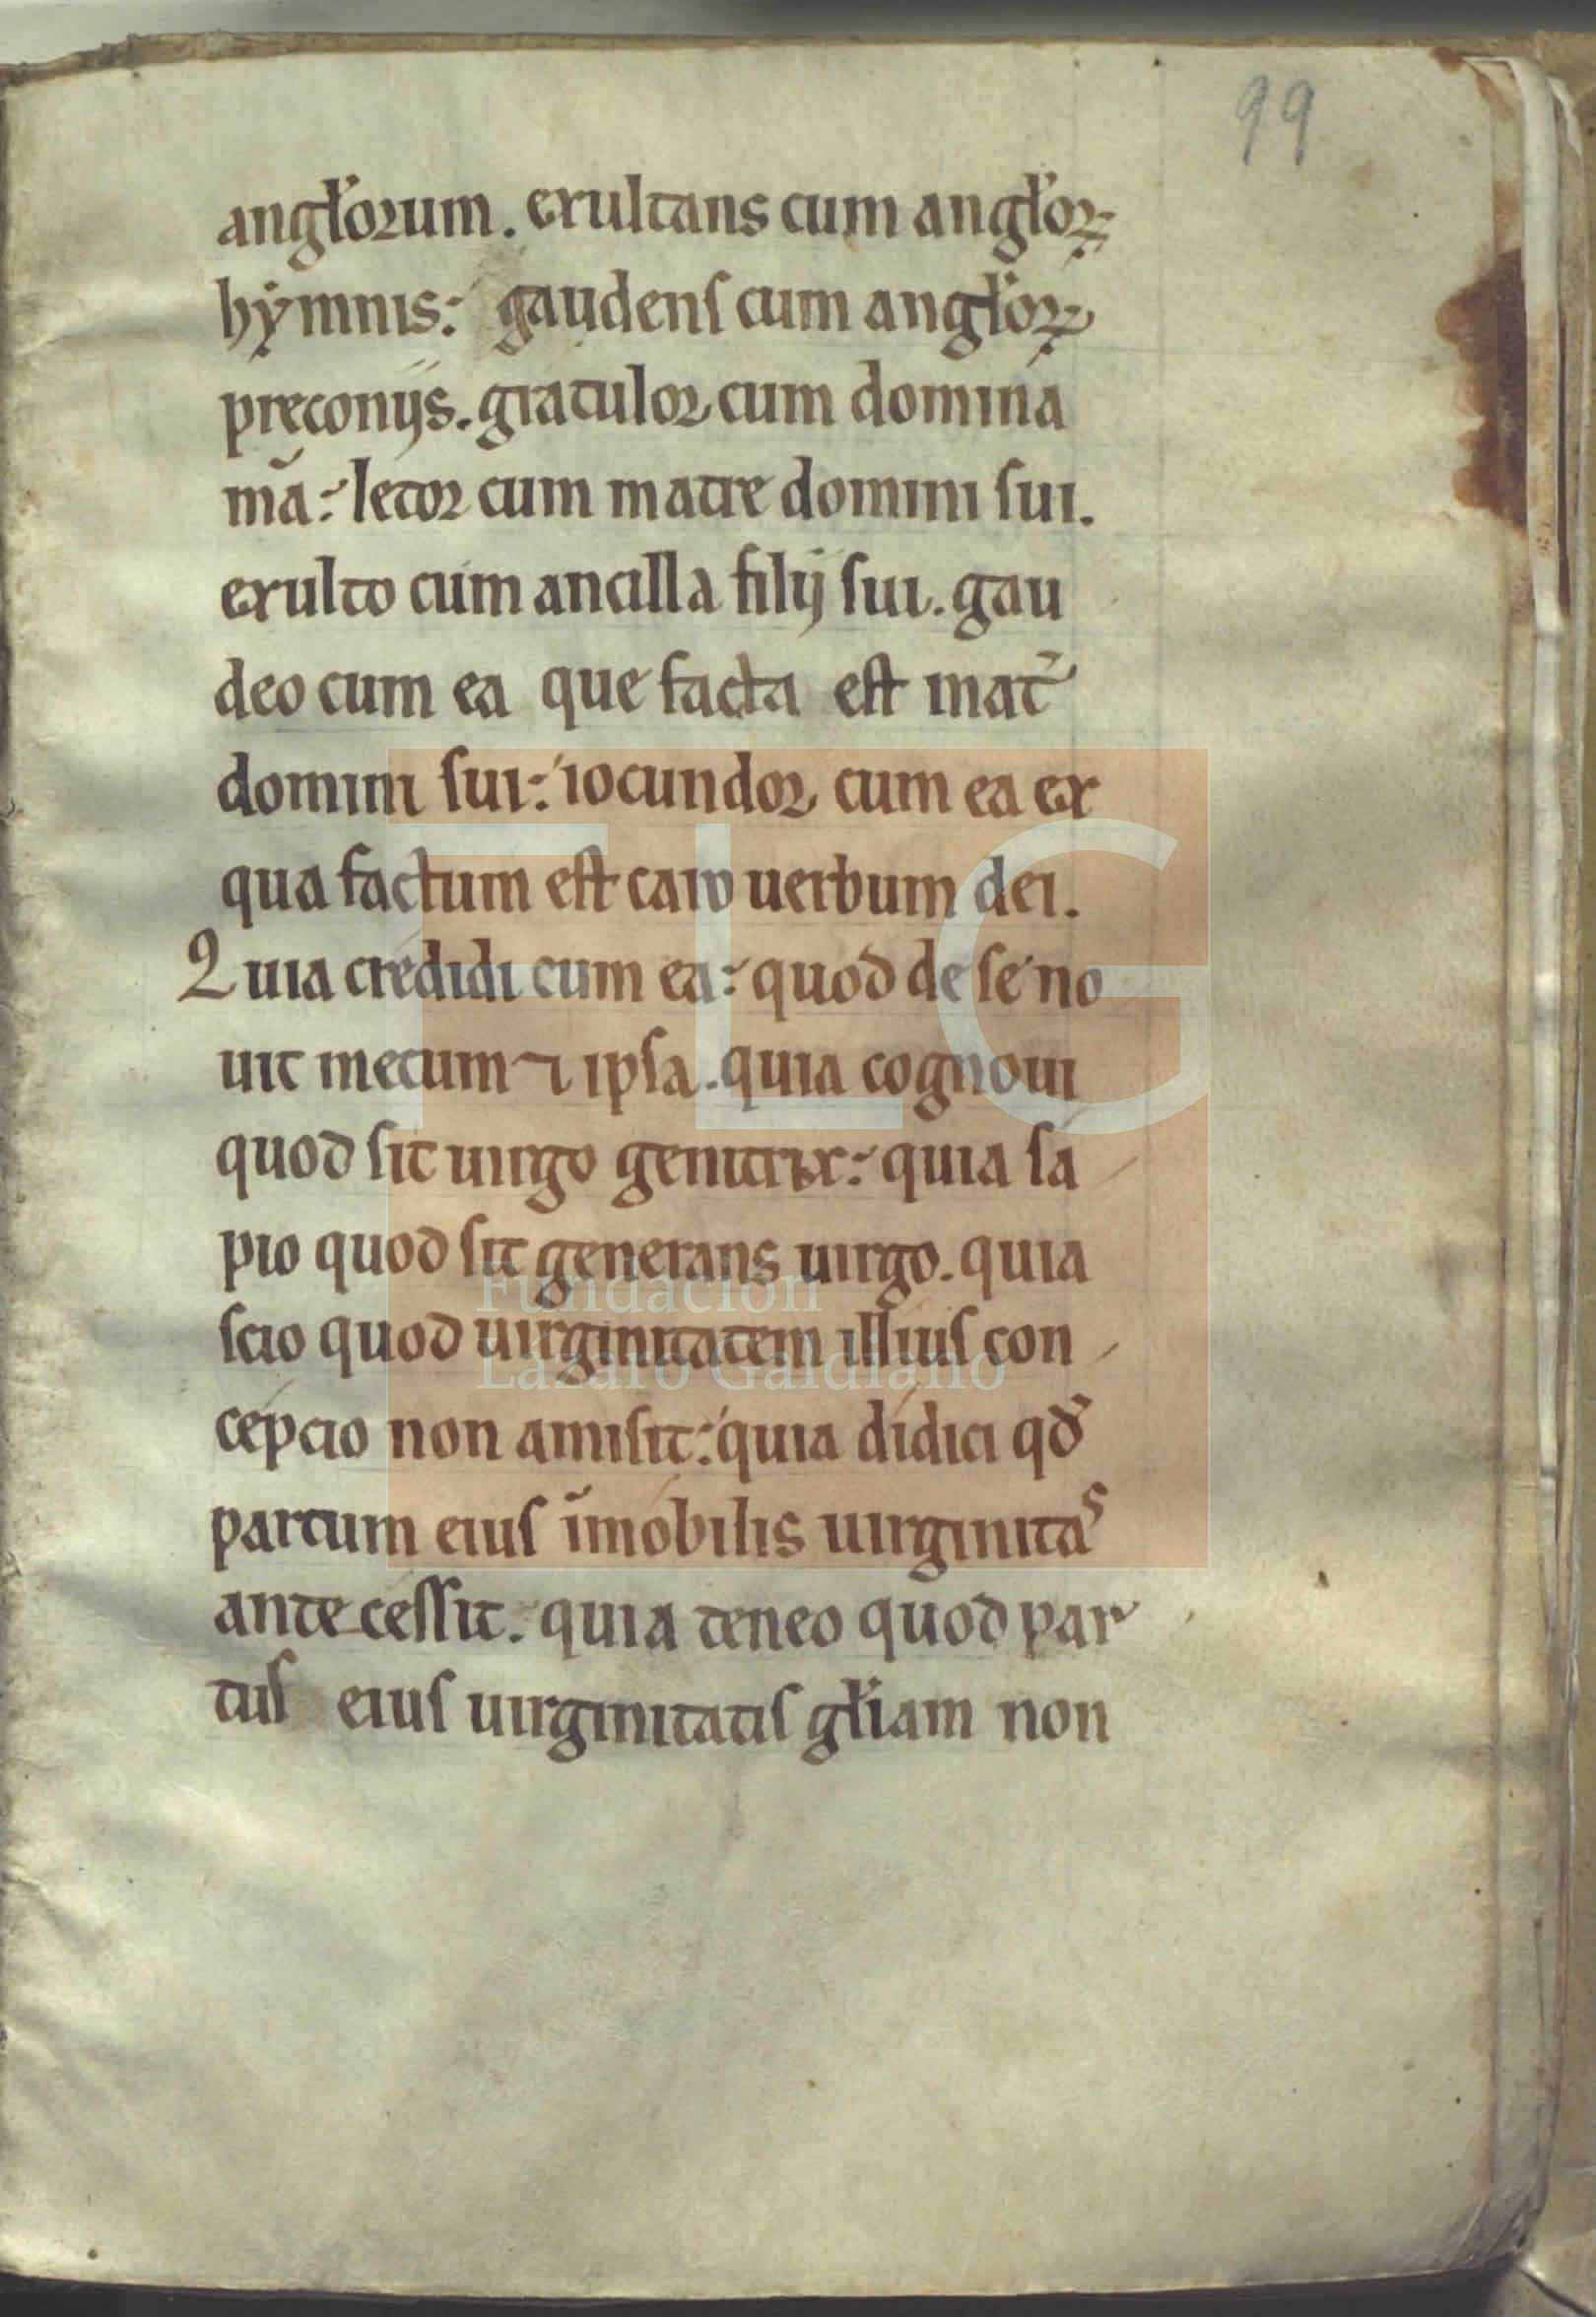 99
angłorum. exultans cum angłoꝝ
hẏmnis: gaudenſ cum angłoꝝ
pręconijs. gratulor cum domina
mā: letor cum matre domini ſui.
exulto cum ancilla filij ſui. gau
deo cum ea que facta eſt mat̄
domini ſui: iocundor cum ea ex
qua factum eſt caro uerbum dei.
Quia credidi cum ea: quod de ſe no
uit mecum ⁊ ipſa. quia cognoui
quod ſit uirgo genitrix: quia ſa
pio quod ſit generans uirgo. quia
scio quod uirginitatem illiuſ con
cepcio non amiſit: quia didici qd̄
partum eiuſ īmobilis uirginitaˢ
ante ceſſit. quia teneo quod par
tuſ eiuſ uirginitatiſ gliam non
FLG
Fundación
Lázaro Galdiano